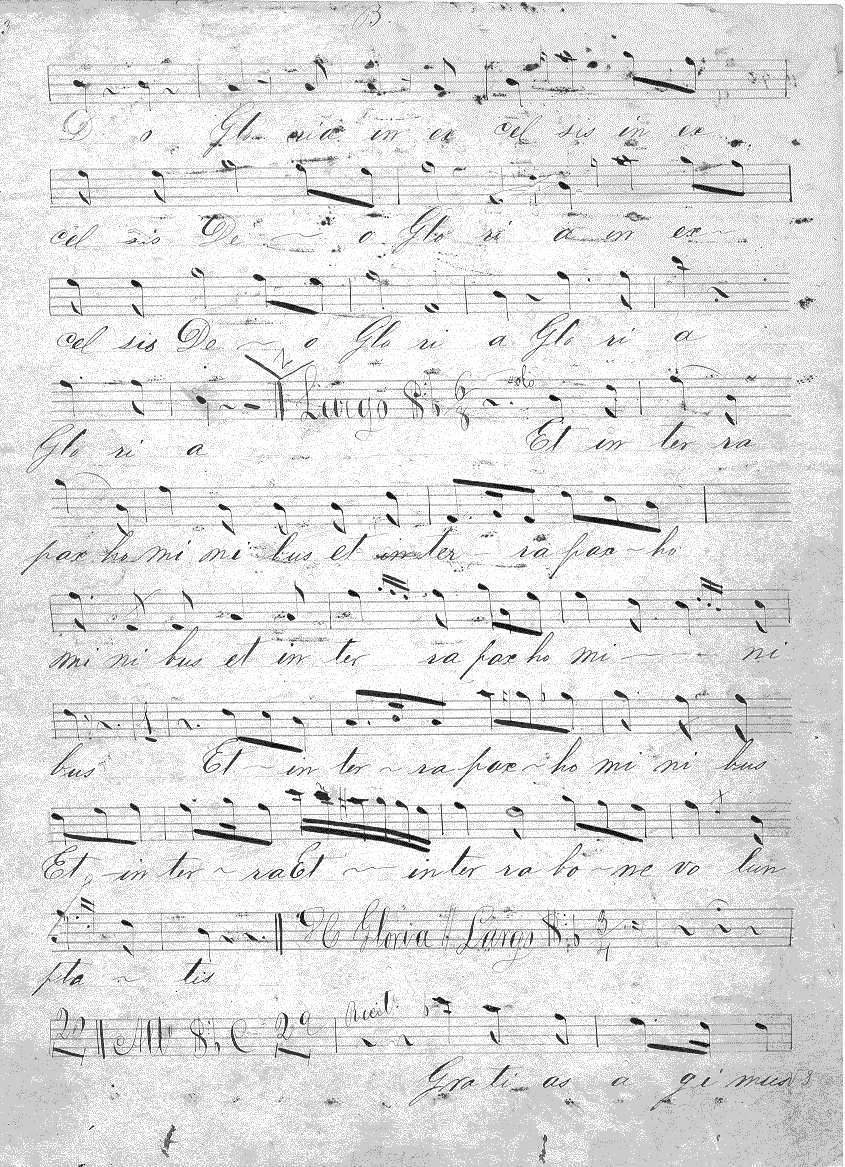 B
D o Gloria in ex cel sis in ex
cel sis De o Glo ri a in ex
cel sis De o Glo ri a Glo ri a
Largo 6 8 solo
Glo ri a Et in ter ra
pax ho mi ni bus et in ter ra pax ho
mi ni bus et in ter ra pax ho mi ni
bus Et in ter ra pax ho mi ni bus
Et in ter ra Et in ter ra bo ne vo lun
DC Gloria Largo 3 4
pta tis
20 All C 29 Recit.
Gra ti as a gi mus